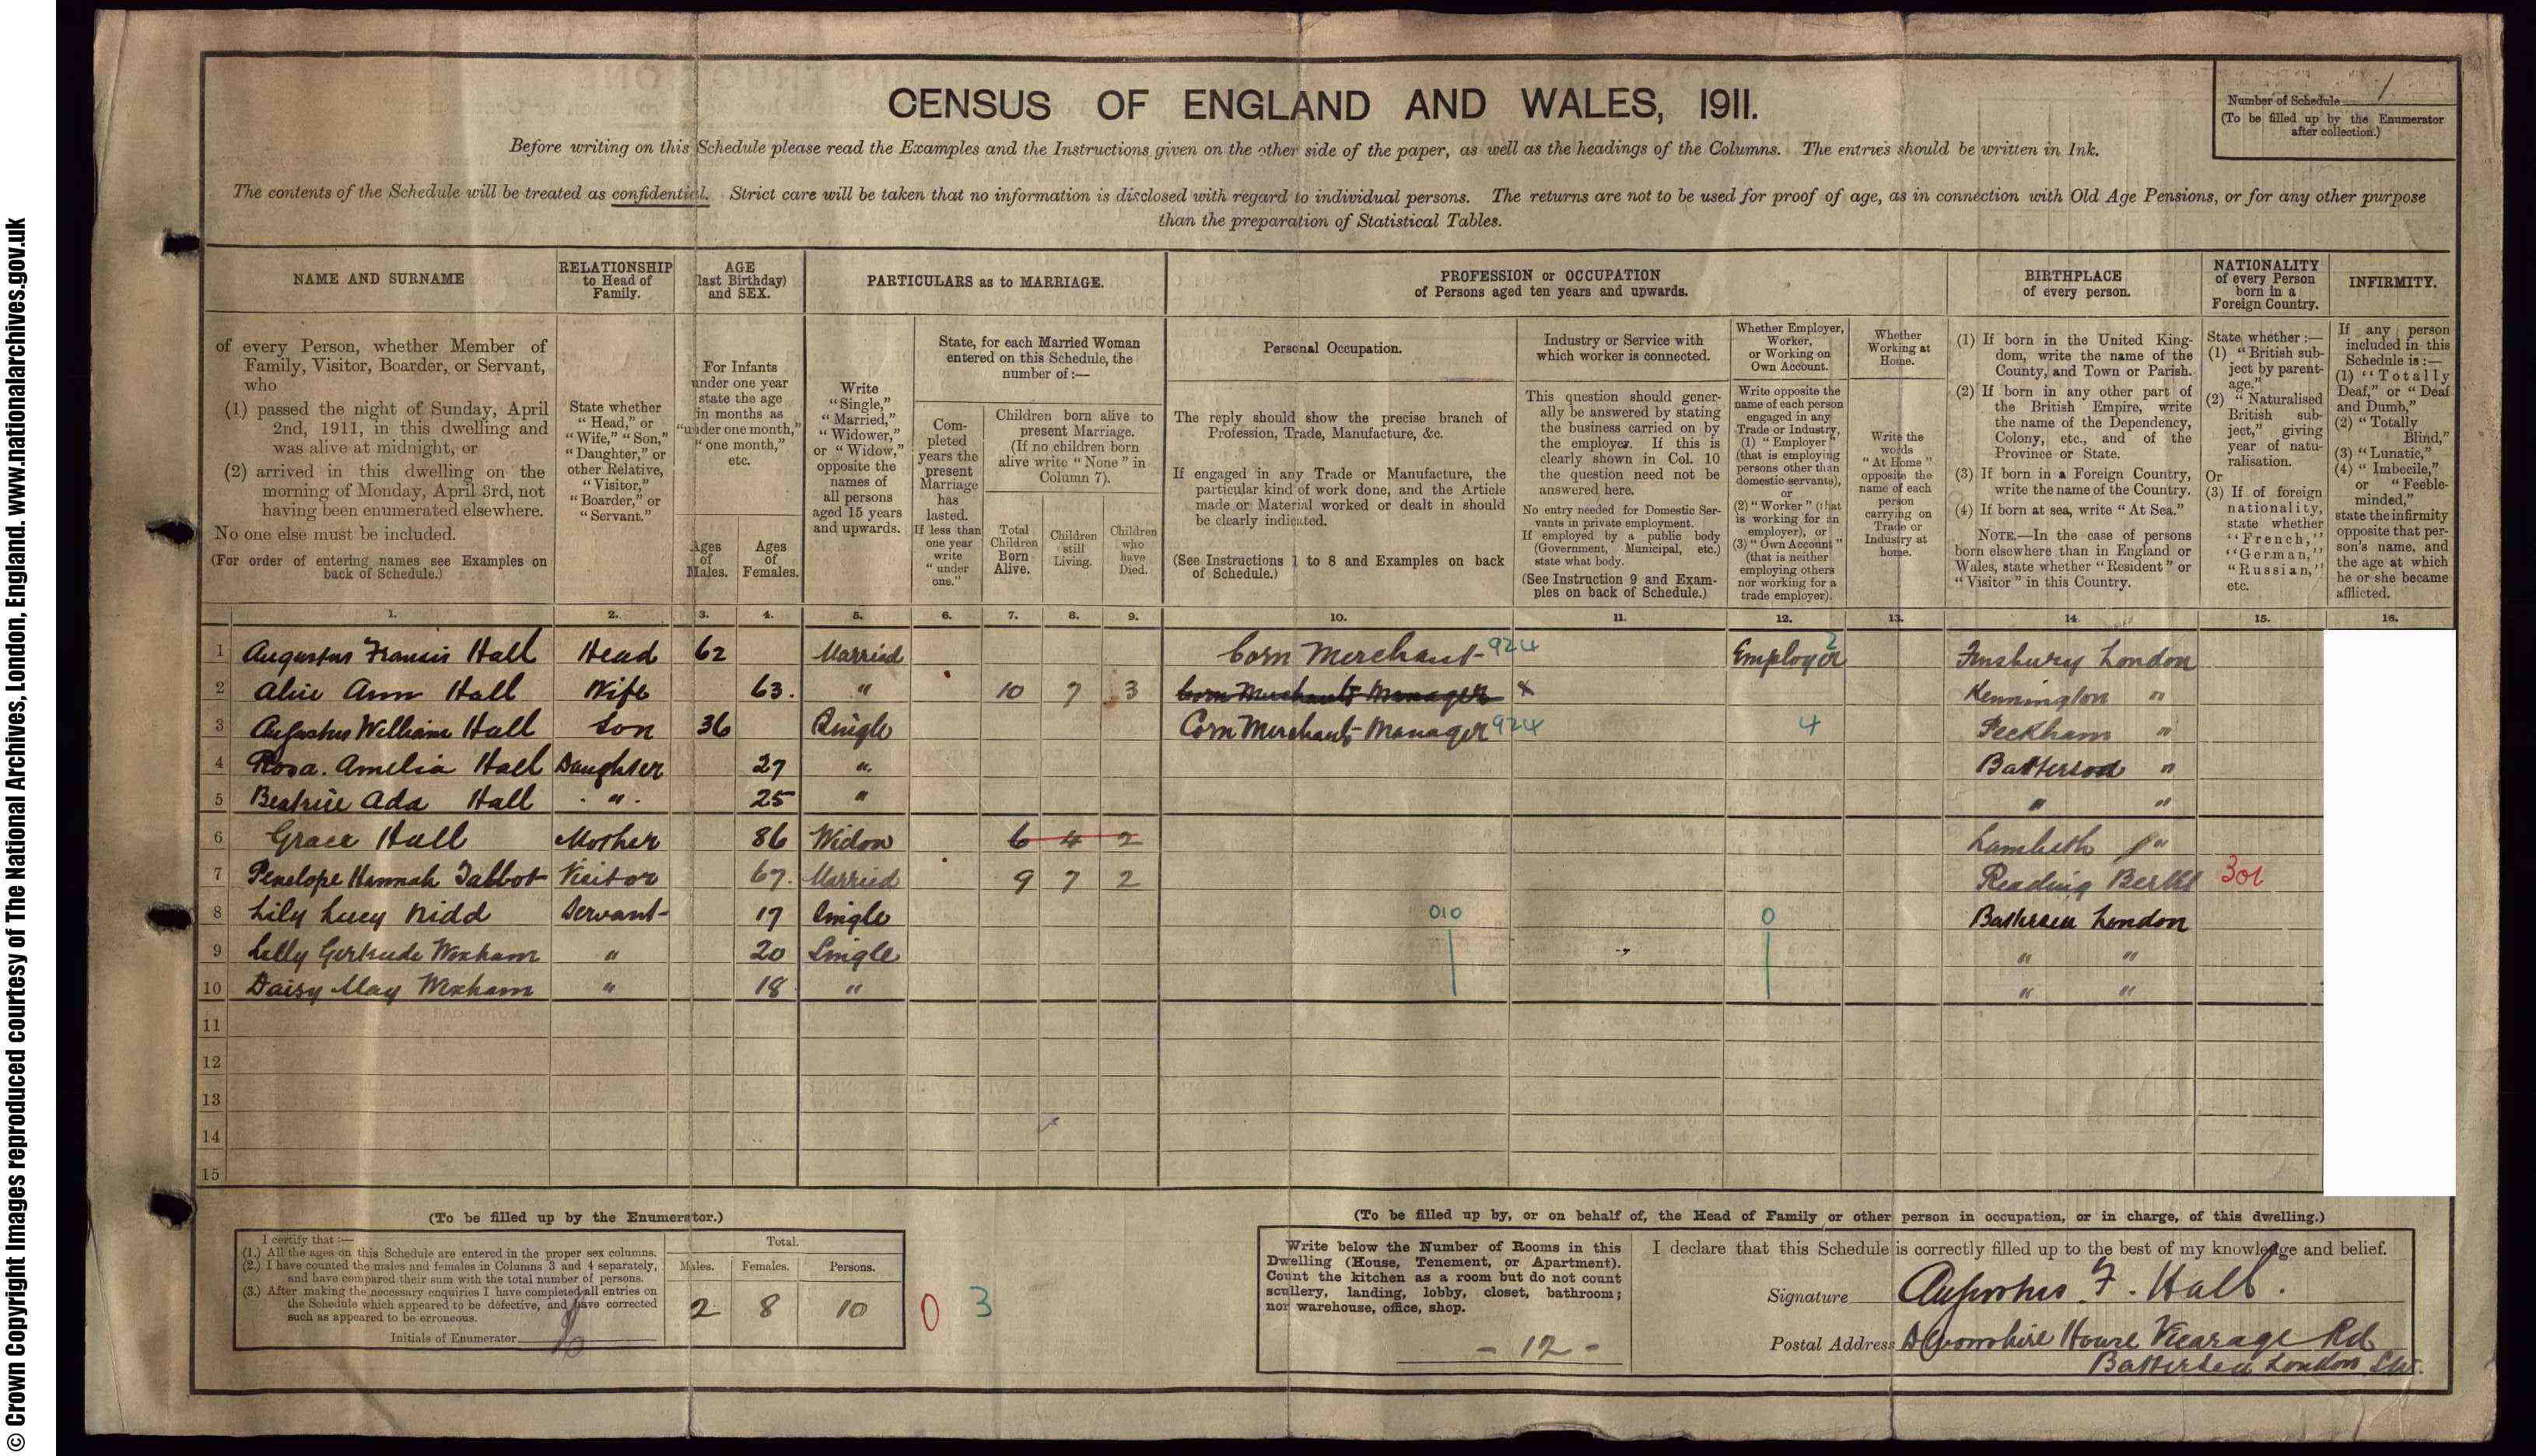 © Crown Copyright Images reproduced courtesy of The National Archives, London, England. www.nationalarchives.gov.uk
CENSUS OF ENGLAND AND WALES, 1911.
Number of Schedule 1
(To be filled up by the Enumerator
after collection.)
Before writing on this Schedule please read the Examples and the Instructions given on the other side of the paper, as well as the headings of the Columns. The entries should be written in Ink.
The contents of the Schedule will be treated as confidential. Strict care will be taken that no information is disclosed with regard to individual persons. The returns are not to be used for proof of age, as in connection with Old Age Pensions, or for any other purpose
than the preparation of Statistical Tables.
NAME AND SURNAME
of every Person, whether Member of
Family, Visitor, Boarder, or Servant,
who
(1) passed the night of Sunday, April
2nd, 1911, in this dwelling and
was alive at midnight, or
(2) arrived in this dwelling on the
morning of Monday, April 3rd, not
having been enumerated elsewhere.
No one else must be included.
(For order of entering names see Examples on
back of Schedule.)
RELATIONSHIP
to Head of
Family.
State whether
"Head," or
"Wife," "Son,"
"Daughter," or
other Relative,
"Visitor,"
"Boarder," or
"Servant."
AGE
(last Birthday)
and SEX.
For Infants
under one year
state the age
in months as
"under one month,"
"one month,"
etc.
Ages
of
Males.
Ages
of
Females.
PARTICULARS as to MARRIAGE.
Write
"Single,"
"Married,"
"Widower,"
or "Widow,"
opposite the
names of
all persons
aged 15 years
and upwards.
State, for each Married Woman
entered on this Schedule, the
number of:—
Com-
pleted
years the
present
Marriage
has
lasted.
If less than
one year
write
"under
one."
Children born alive to
present Marriage.
(If no children born
alive write "None" in
Column 7).
Total
Children
Born
Alive.
Children
still
Living.
Children
who
have
Died.
PROFESSION or OCCUPATION
of Persons aged ten years and upwards.
Personal Occupation.
The reply should show the precise branch of
Profession, Trade, Manufacture, &c.
If engaged in any Trade or Manufacture, the
particular kind of work done, and the Article
made or Material worked or dealt in should
be clearly indicated.
(See Instructions 1 to 8 and Examples on back
of Schedule.)
Industry or Service with
which worker is connected.
This question should gener-
ally be answered by stating
the business carried on by
the employer. If this is
clearly shown in Col. 10
the question need not be
answered here.
No entry needed for Domestic Ser-
vants in private employment.
If employed by a public body
(Government, Municipal, etc.)
state what body.
(See Instruction 9 and Exam-
ples on back of Schedule.)
Whether Employer,
Worker,
or Working on
Own Account.
Write opposite the
name of each person
engaged in any
Trade or Industry,
(1) "Employer"
(that is employing
persons other than
domestic servants),
or
(2) "Worker" (that
is working for an
employer), or
(3) "Own Account"
(that is neither
employing others
nor working for a
trade employer).
Whether
Working at
Home.
Write the
words
"At Home"
opposite the
name of each
person
carrying on
Trade or
Industry at
home.
BIRTHPLACE
of every person.
(1) If born in the United King-
dom, write the name of the
County, and Town or Parish.
(2) If born in any other part of
the British Empire, write
the name of the Dependency,
Colony, etc., and of the
Province or State.
(3) If born in a Foreign Country,
write the name of the Country.
(4) If born at sea, write "At Sea."
NOTE.—In the case of persons
born elsewhere than in England or
Wales, state whether "Resident" or
"Visitor" in this Country.
NATIONALITY
of every Person
born in a
Foreign Country.
State whether:—
(1) "British sub-
ject by parent-
age."
(2) "Naturalised
British sub-
ject," giving
year of natu-
ralisation.
Or
(3) If of foreign
nationality,
state whether
"French,"
"German,"
"Russian,"
etc.
INFIRMITY.
If any person
included in this
Schedule is:—
(1) "Totally
Deaf," or "Deaf
and Dumb,"
(2) "Totally
Blind,"
(3) "Lunatic,"
(4) "Imbecile,"
or "Feeble-
minded,"
state the infirmity
opposite that per-
son's name, and
the age at which
he or she became
afflicted.
1. 2. 3. 4. 5. 6. 7. 8. 9. 10. 11. 12. 13. 14. 15. 16.
1 Augustus Francis Hall Head 62 Married Corn Merchant 924 Employer 2 Finsbury London
2 Alice Ann Hall Wife 63. " 10 7 3 Corn Merchants Manager x Kennington "
3 Augustus William Hall Son 36 Single Corn Merchants Manager 924 4 Peckham "
4 Rosa. Amelia Hall Daughter 27 " Battersea "
5 Beatrice Ada Hall " 25 " " "
6 Grace Hall Mother 86 Widow 6 4 2 Lambeth "
7 Penelope Hannah Talbot Visitor 67. Married 9 7 2 Reading Berks 301
8 Lily Lucy Nidd Servant 17 Single 010 0 Battersea London
9 Lilly Gertrude Wexham " 20 Single " "
10 Daisy May Wexham " 18 " " "
11
12
13
14
15
(To be filled up by the Enumerator.)
I certify that:—
(1.) All the ages on this Schedule are entered in the proper sex columns.
(2.) I have counted the males and females in Columns 3 and 4 separately,
and have compared their sum with the total number of persons.
(3.) After making the necessary enquiries I have completed all entries on
the Schedule which appeared to be defective, and have corrected
such as appeared to be erroneous.
Initials of Enumerator
Total.
Males. Females. Persons.
2 8 10 0 3
(To be filled up by, or on behalf of, the Head of Family or other person in occupation, or in charge, of this dwelling.)
Write below the Number of Rooms in this
Dwelling (House, Tenement, or Apartment).
Count the kitchen as a room but do not count
scullery, landing, lobby, closet, bathroom;
nor warehouse, office, shop.
- 12 -
I declare that this Schedule is correctly filled up to the best of my knowledge and belief.
Signature Augustus F. Hall.
Postal Address Devonshire House Vicarage Rd
Battersea London S.W.